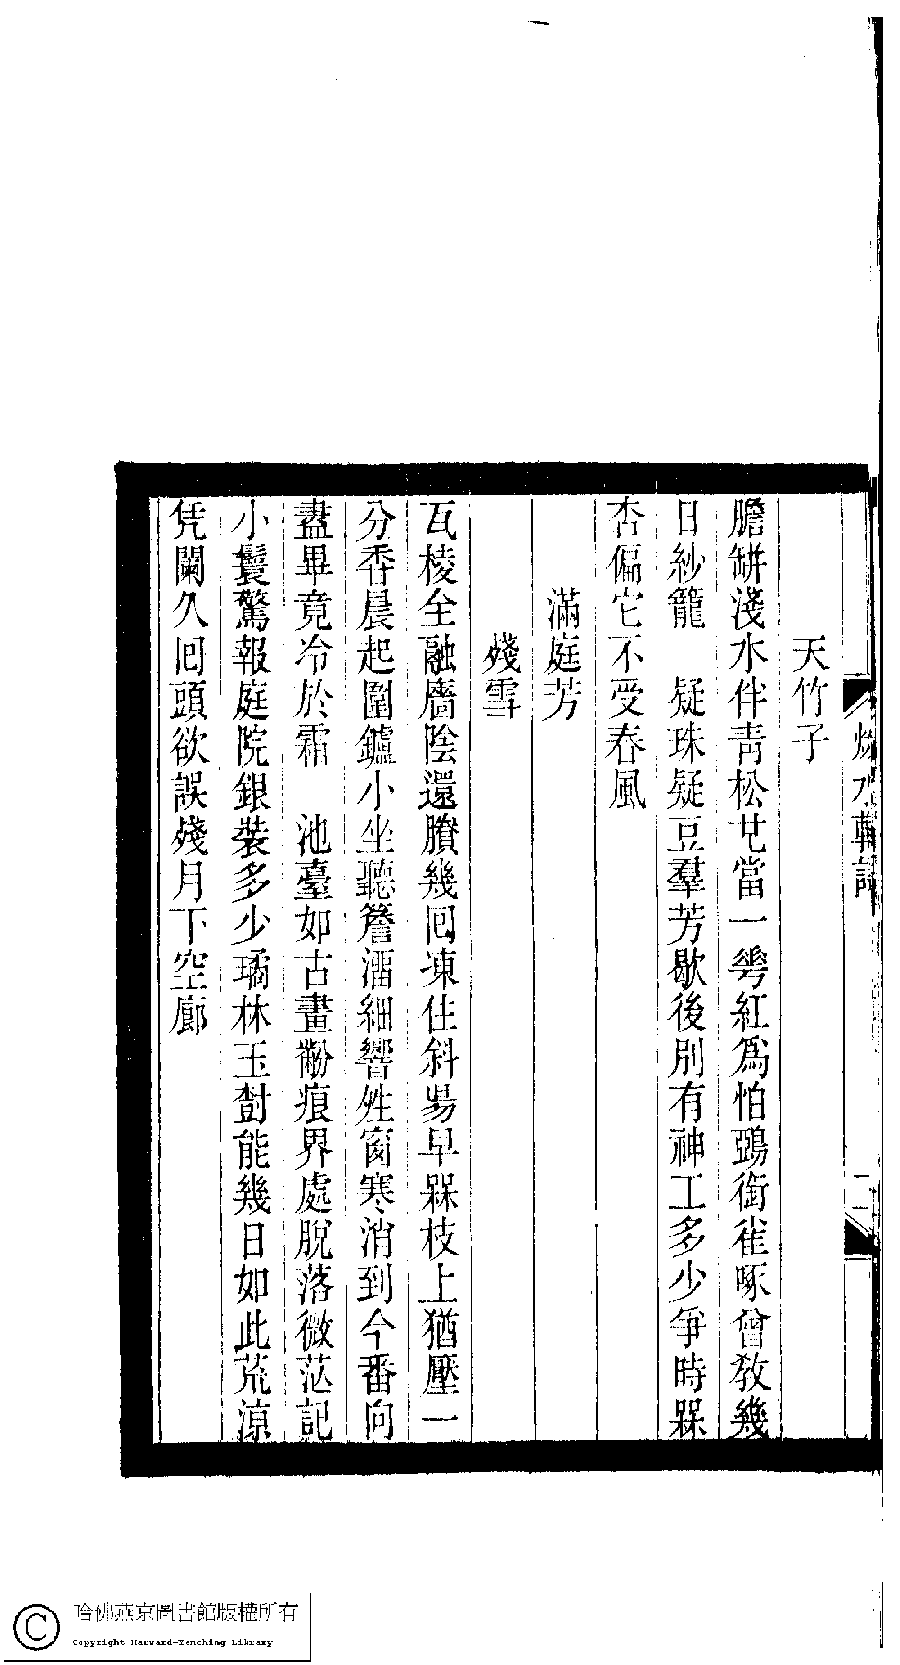 水軒詞
二
天竹子
膽缾淺水伴青松也當一紅爲怕鵶銜雀啄曾教幾
日紗籠　疑珠疑豆羣芳歇後別有神工多少爭時槑
杏偏它不受春風
滿庭芳
殘雪
瓦棱全融牆陰還賸幾回凍住斜昜早槑枝上猶壓一
分香晨起圍鑪小坐聽簷溜細響窗寒消到今番向
盡畢竟冷於霜　池臺如古畫黺痕界處脫落微茫記
小鬟驚報庭院銀裝多少璚林玉尌能幾日如此荒涼
凭闌久回頭欲誤殘月下空廊
哈佛燕京圖書館版權所有
Copyright Harvard-Yenching Library